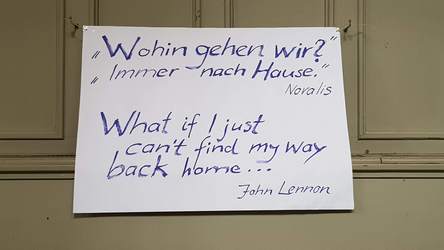 „Wohin gehen wir?"
„Immer nach Hause."
Novalis
What if I just
can't find my way
back home...
John Lennon